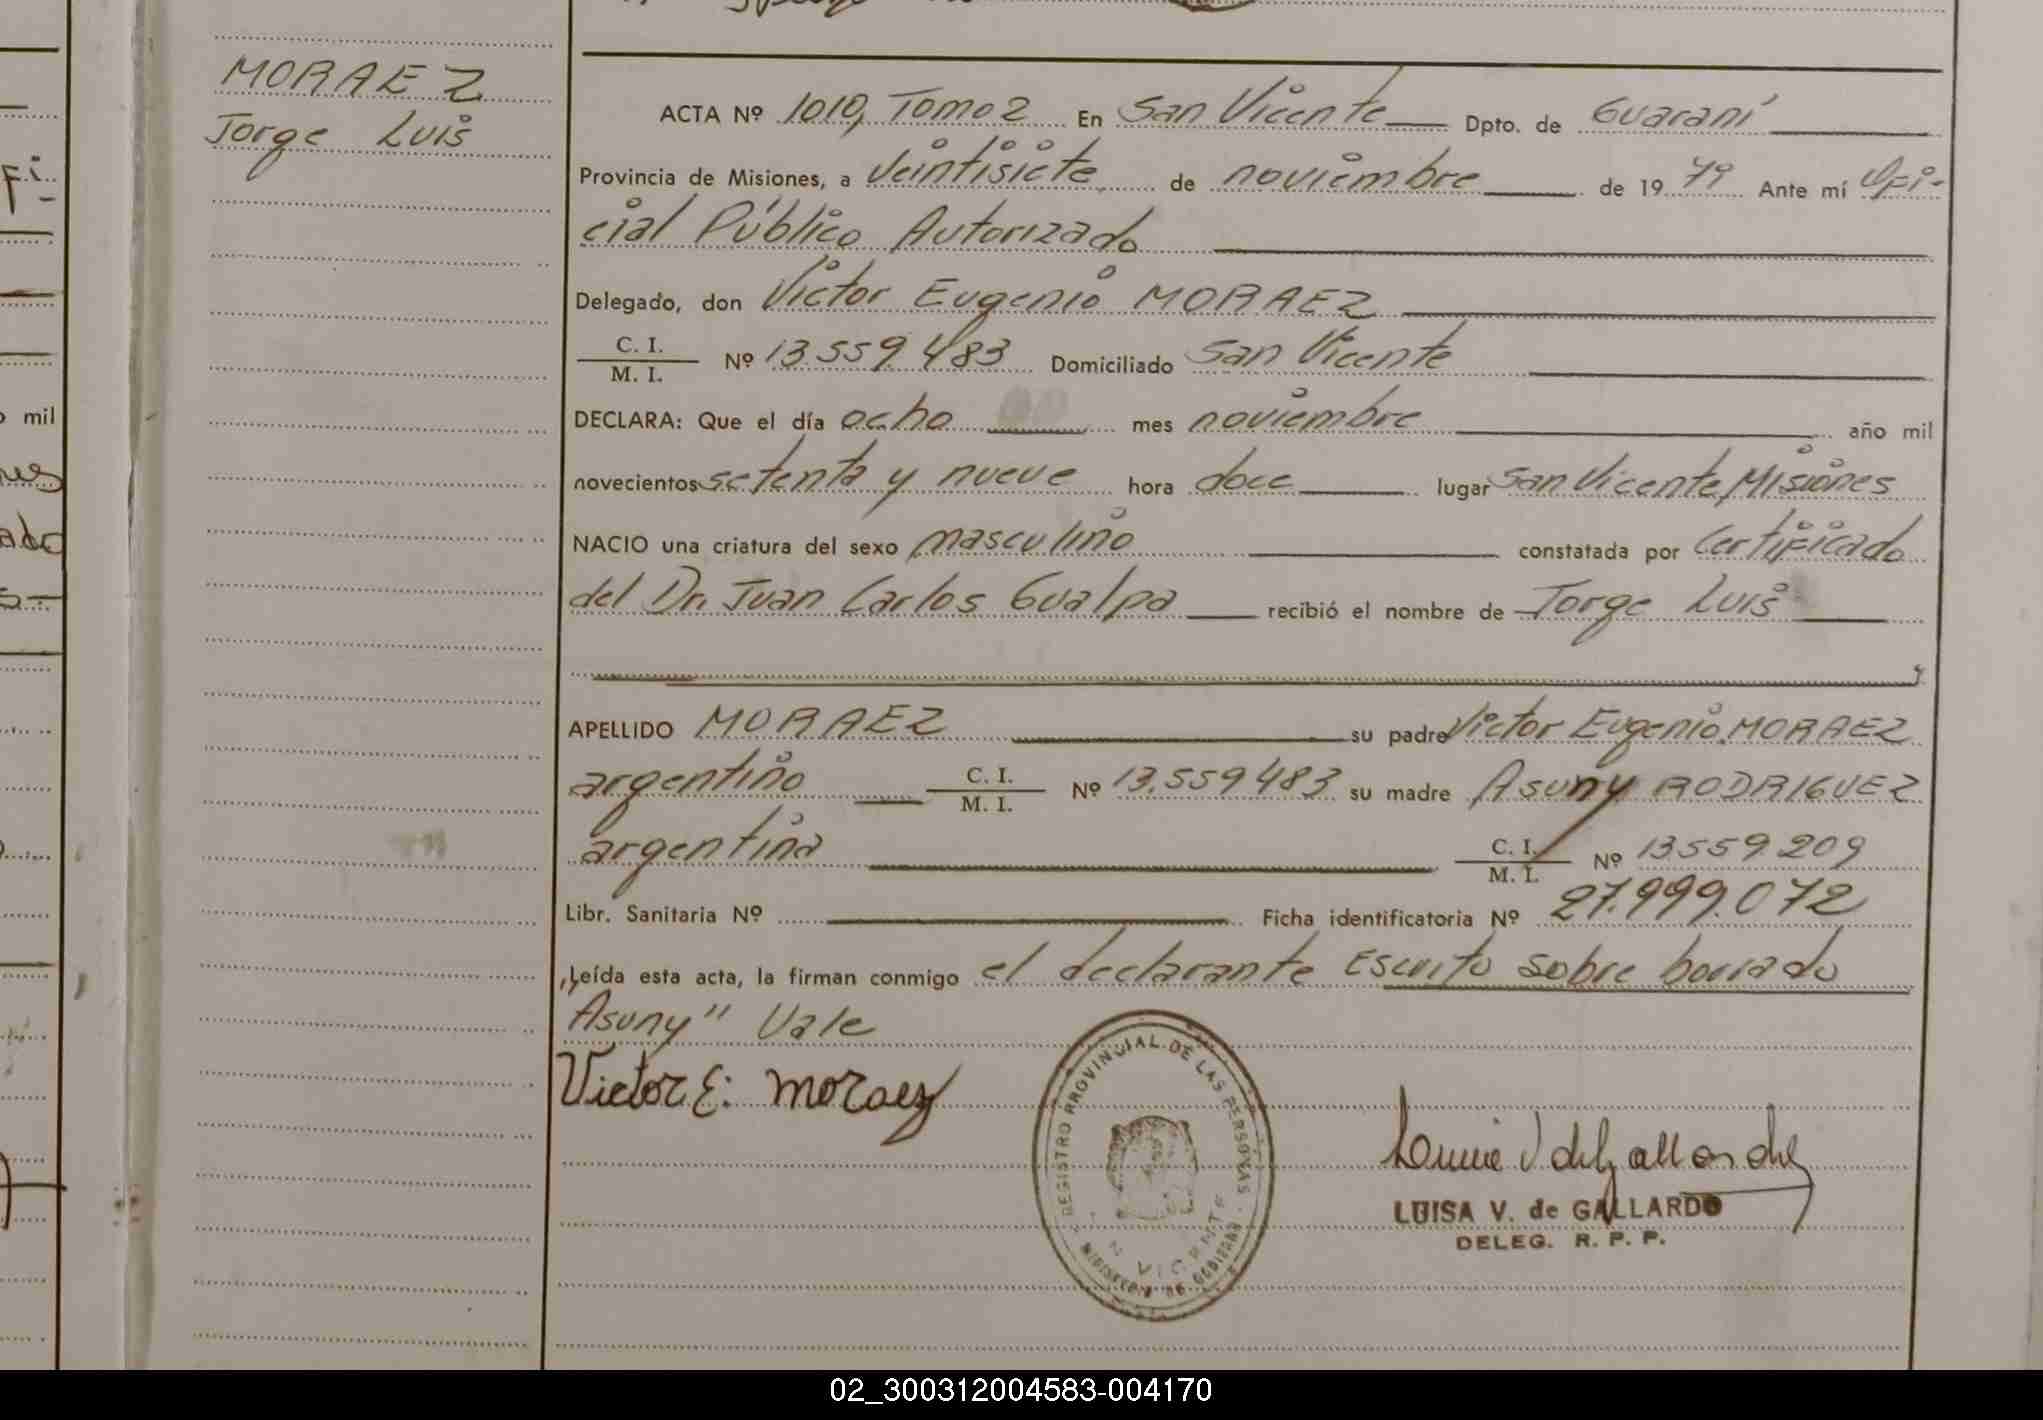 MORAEZ
Jorge Luis
ACTA Nº 1010, Tomo 2 En San Vicente Dpto. de Guaraní
Provincia de Misiones, a veintisiete de noviembre de 1979 Ante mí Ofi-
cial Público Autorizado
Delegado, don Victor Eugenio MORAEZ
C. I. / M. I. Nº 13.559.483 Domiciliado San Vicente
DECLARA: Que el día ocho mes noviembre año mil
novecientos setenta y nueve hora doce lugar San Vicente, Misiones
NACIO una criatura del sexo masculino constatada por Certificado
del Dr. Juan Carlos Gualpa recibió el nombre de Jorge Luis
APELLIDO MORAEZ su padre Victor Eugenio MORAEZ
argentino C. I. / M. I. Nº 13.559.483 su madre Asuny RODRIGUEZ
argentina C. I. / M. I. Nº 13.559.209
Libr. Sanitaria Nº Ficha identificatoria Nº 27.999.072
Leída esta acta, la firman conmigo el declarante Escrito sobre borrado
"Asuny" Vale
Victor E. Moraez
REGISTRO PROVINCIAL DE LAS PERSONAS
VICENTE
MINISTERIO DE GOBIERNO
LUISA V. de GALLARDO
DELEG. R. P. P.
mil
02_300312004583-004170